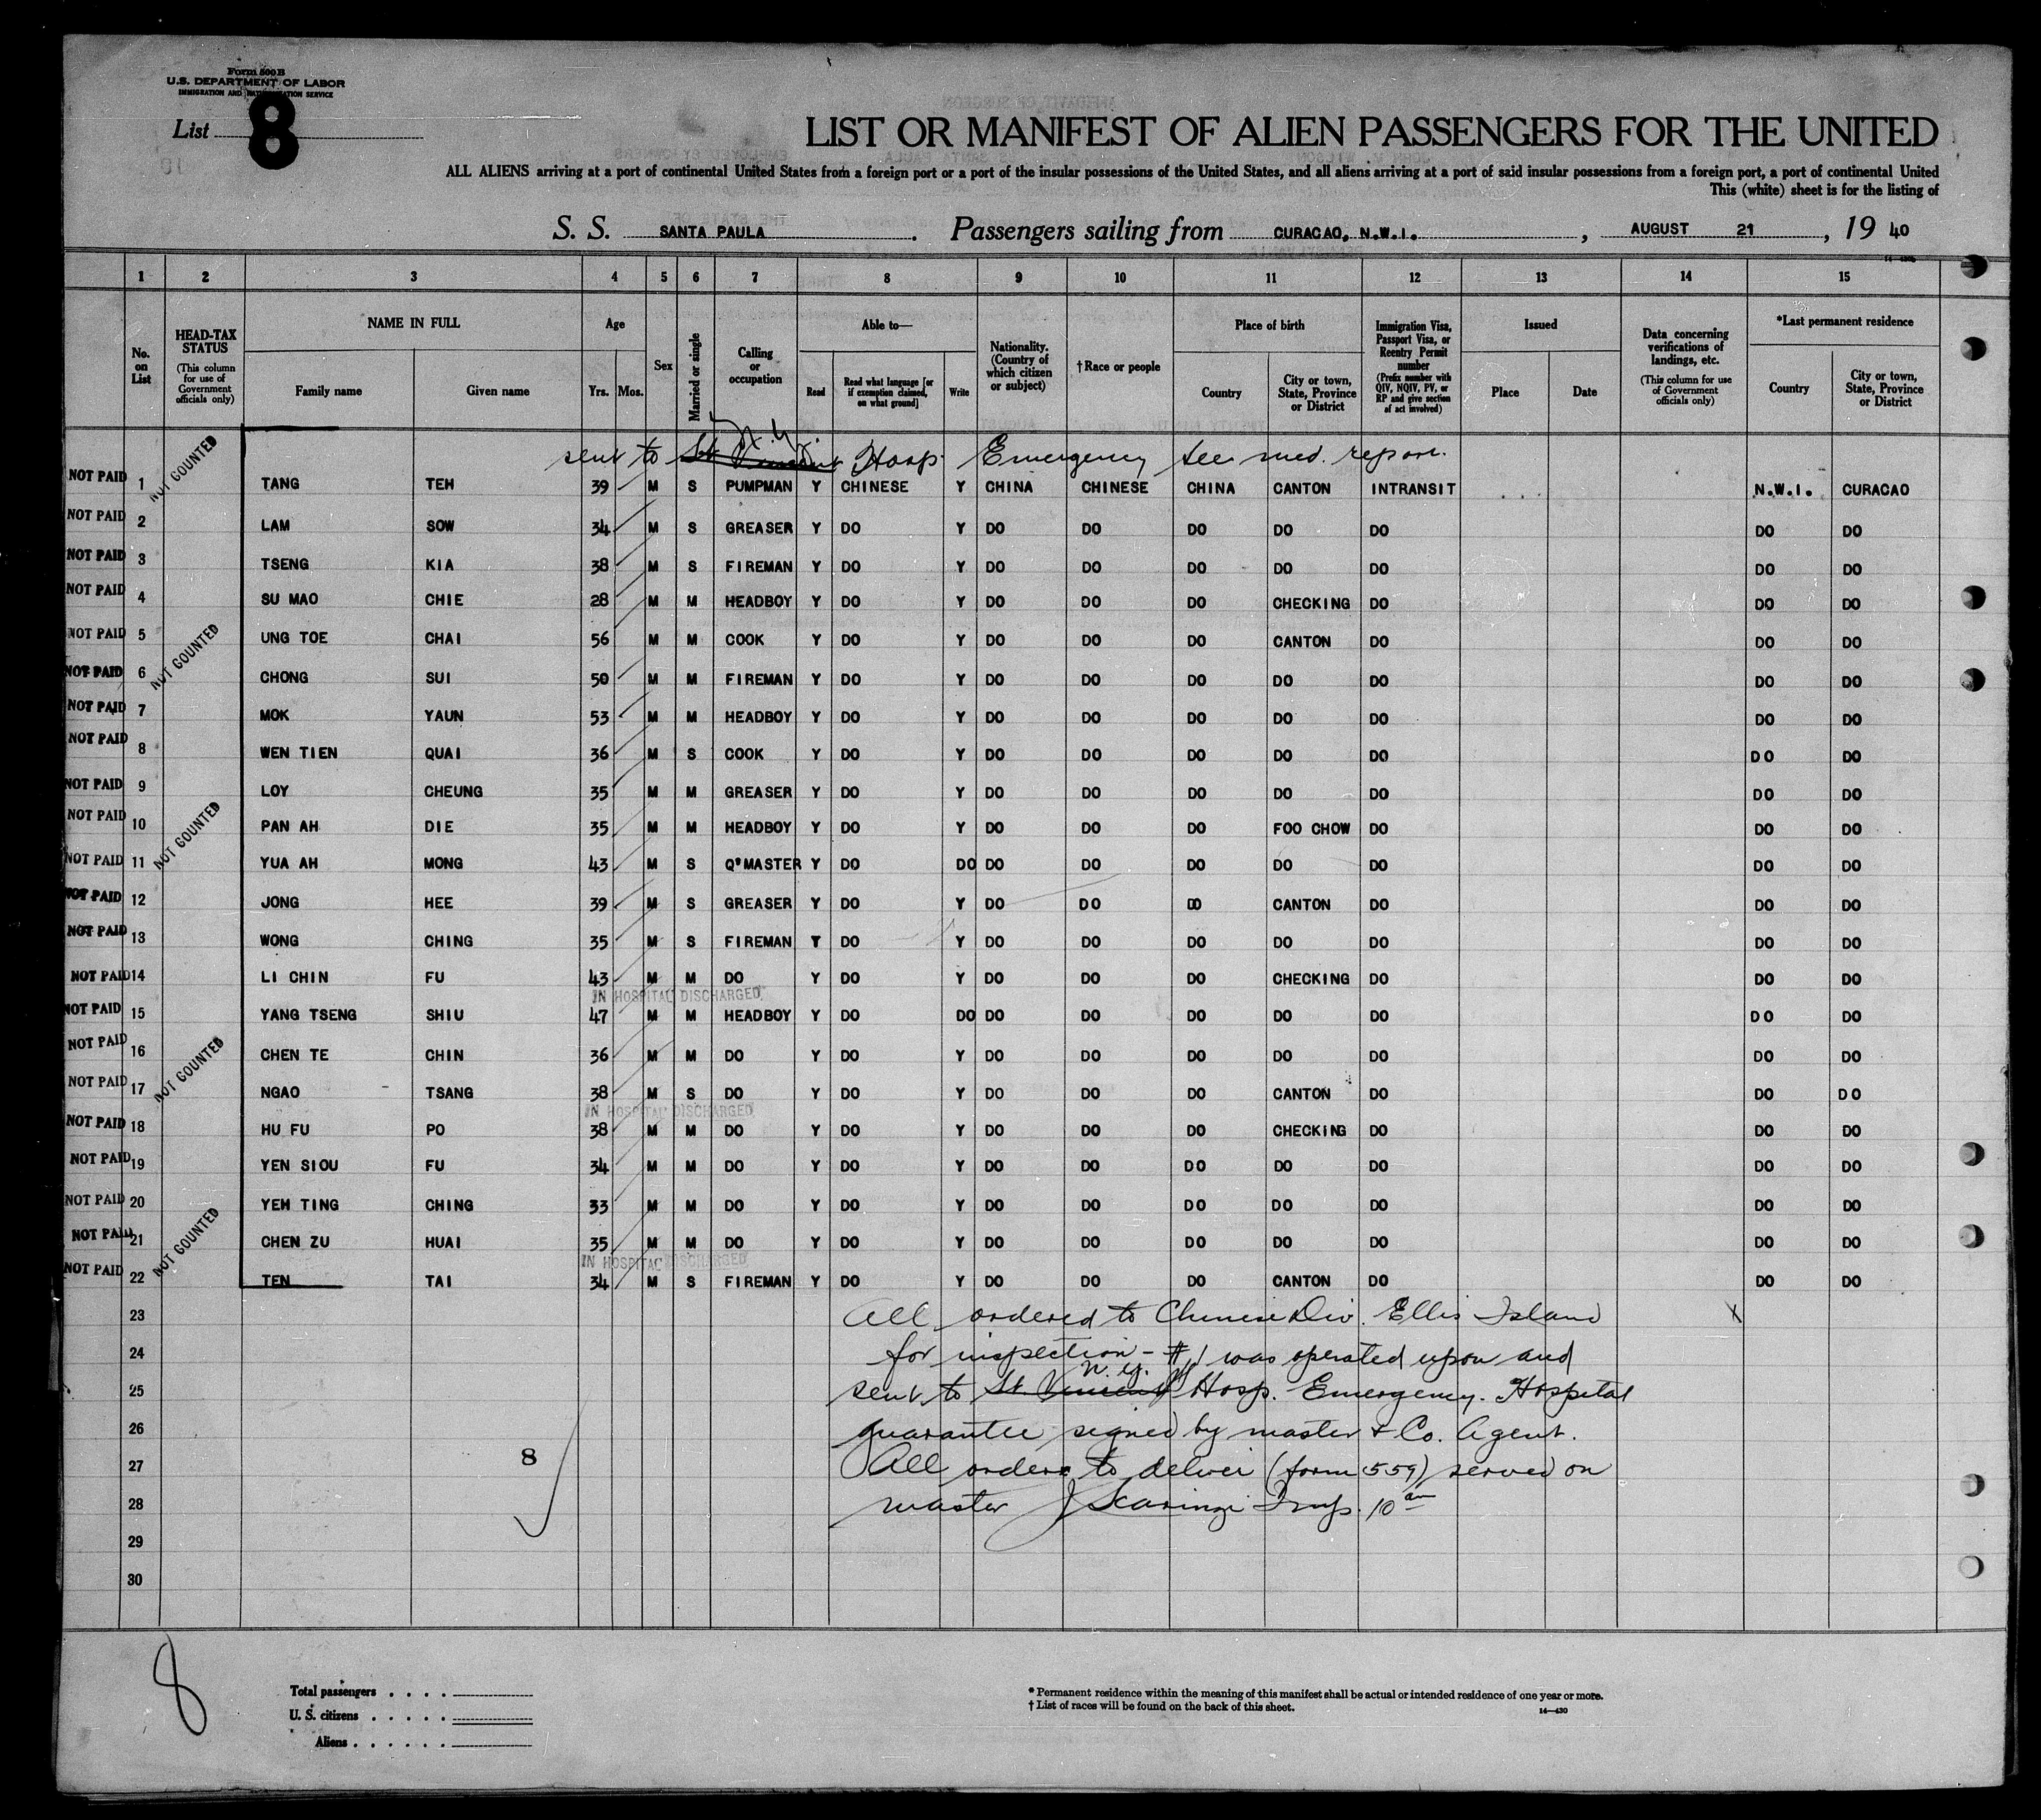 Form 500B
U.S. DEPARTMENT OF LABOR
IMMIGRATION AND NATURALIZATION SERVICE
List 8
LIST OR MANIFEST OF ALIEN PASSENGERS FOR THE UNITED
ALL ALIENS arriving at a port of continental United States from a foreign port or a port of the insular possessions of the United States, and all aliens arriving at a port of said insular possessions from a foreign port, a port of continental United
This (white) sheet is for the listing of
S. S. SANTA PAULA. Passengers sailing from CURACAO, N.W.I., AUGUST 21, 19 40
1 2 3 4 5 6 7 8 9 10 11 12 13 14 15
No. on List
HEAD-TAX STATUS (This column for use of Government officials only)
NAME IN FULL Family name Given name
Age Yrs. Mos.
Sex
Married or single
Calling or occupation
Able to— Read Read what language [or if exemption claimed, on what ground] Write
Nationality. (Country of which citizen or subject)
†Race or people
Place of birth Country City or town, State, Province or District
Immigration Visa, Passport Visa, or Reentry Permit number (Prefix number with QIV, NQIV, PV, or RP and give section of act involved)
Issued Place Date
Data concerning verifications of landings, etc. (This column for use of Government officials only)
*Last permanent residence Country City or town, State, Province or District
sent to St Vincent N.Y. Hosp. Emergency see med. report.
NOT COUNTED
NOT PAID 1 TANG TEH 39 M S PUMPMAN Y CHINESE Y CHINA CHINESE CHINA CANTON INTRANSIT N.W.I. CURACAO
NOT PAID 2 LAM SOW 34 M S GREASER Y DO Y DO DO DO DO DO DO DO
NOT PAID 3 TSENG KIA 38 M S FIREMAN Y DO Y DO DO DO DO DO DO DO
NOT PAID 4 SU MAO CHIE 28 M M HEADBOY Y DO Y DO DO DO CHECKING DO DO DO
NOT PAID 5 UNG TOE CHAI 56 M M COOK Y DO Y DO DO DO CANTON DO DO DO
NOT COUNTED
NOT PAID 6 CHONG SUI 50 M M FIREMAN Y DO Y DO DO DO DO DO DO DO
NOT PAID 7 MOK YAUN 53 M M HEADBOY Y DO Y DO DO DO DO DO DO DO
NOT PAID 8 WEN TIEN QUAI 36 M S COOK Y DO Y DO DO DO DO DO DO DO
NOT PAID 9 LOY CHEUNG 35 M M GREASER Y DO Y DO DO DO DO DO DO DO
NOT PAID 10 PAN AH DIE 35 M M HEADBOY Y DO Y DO DO DO FOO CHOW DO DO DO
NOT COUNTED
NOT PAID 11 YUA AH MONG 43 M S Q'MASTER Y DO DO DO DO DO DO DO DO DO
NOT PAID 12 JONG HEE 39 M S GREASER Y DO Y DO DO DO CANTON DO DO DO
NOT PAID 13 WONG CHING 35 M S FIREMAN Y DO Y DO DO DO DO DO DO DO
NOT PAID 14 LI CHIN FU 43 M M DO Y DO Y DO DO DO CHECKING DO DO DO
IN HOSPITAL DISCHARGED
NOT PAID 15 YANG TSENG SHIU 47 M M HEADBOY Y DO DO DO DO DO DO DO DO DO
NOT PAID 16 CHEN TE CHIN 36 M M DO Y DO Y DO DO DO DO DO DO DO
NOT COUNTED
NOT PAID 17 NGAO TSANG 38 M S DO Y DO Y DO DO DO CANTON DO DO DO
IN HOSPITAL DISCHARGED
NOT PAID 18 HU FU PO 38 M M DO Y DO Y DO DO DO CHECKING DO DO DO
NOT PAID 19 YEN SIOU FU 34 M M DO Y DO Y DO DO DO DO DO DO DO
NOT PAID 20 YEH TING CHING 33 M M DO Y DO Y DO DO DO DO DO DO DO
NOT COUNTED
NOT PAID 21 CHEN ZU HUAI 35 M M DO Y DO Y DO DO DO DO DO DO DO
IN HOSPITAL DISCHARGED
NOT PAID 22 TEN TAI 34 M S FIREMAN Y DO Y DO DO DO CANTON DO DO DO
23 All ordered to Chinese Div. Ellis Island
24 for inspection - #1 was operated upon and
25 sent to St. Vincent N.Y. Hosp. Emergency. Hospital
26 guarantee signed by master & Co. Agent.
27 All orders to deliver (form 559) served on
28 master J Scaringi Insp. 10 am
29
30
8
8
Total passengers
U. S. citizens
Aliens
* Permanent residence within the meaning of this manifest shall be actual or intended residence of one year or more.
† List of races will be found on the back of this sheet.
14—430